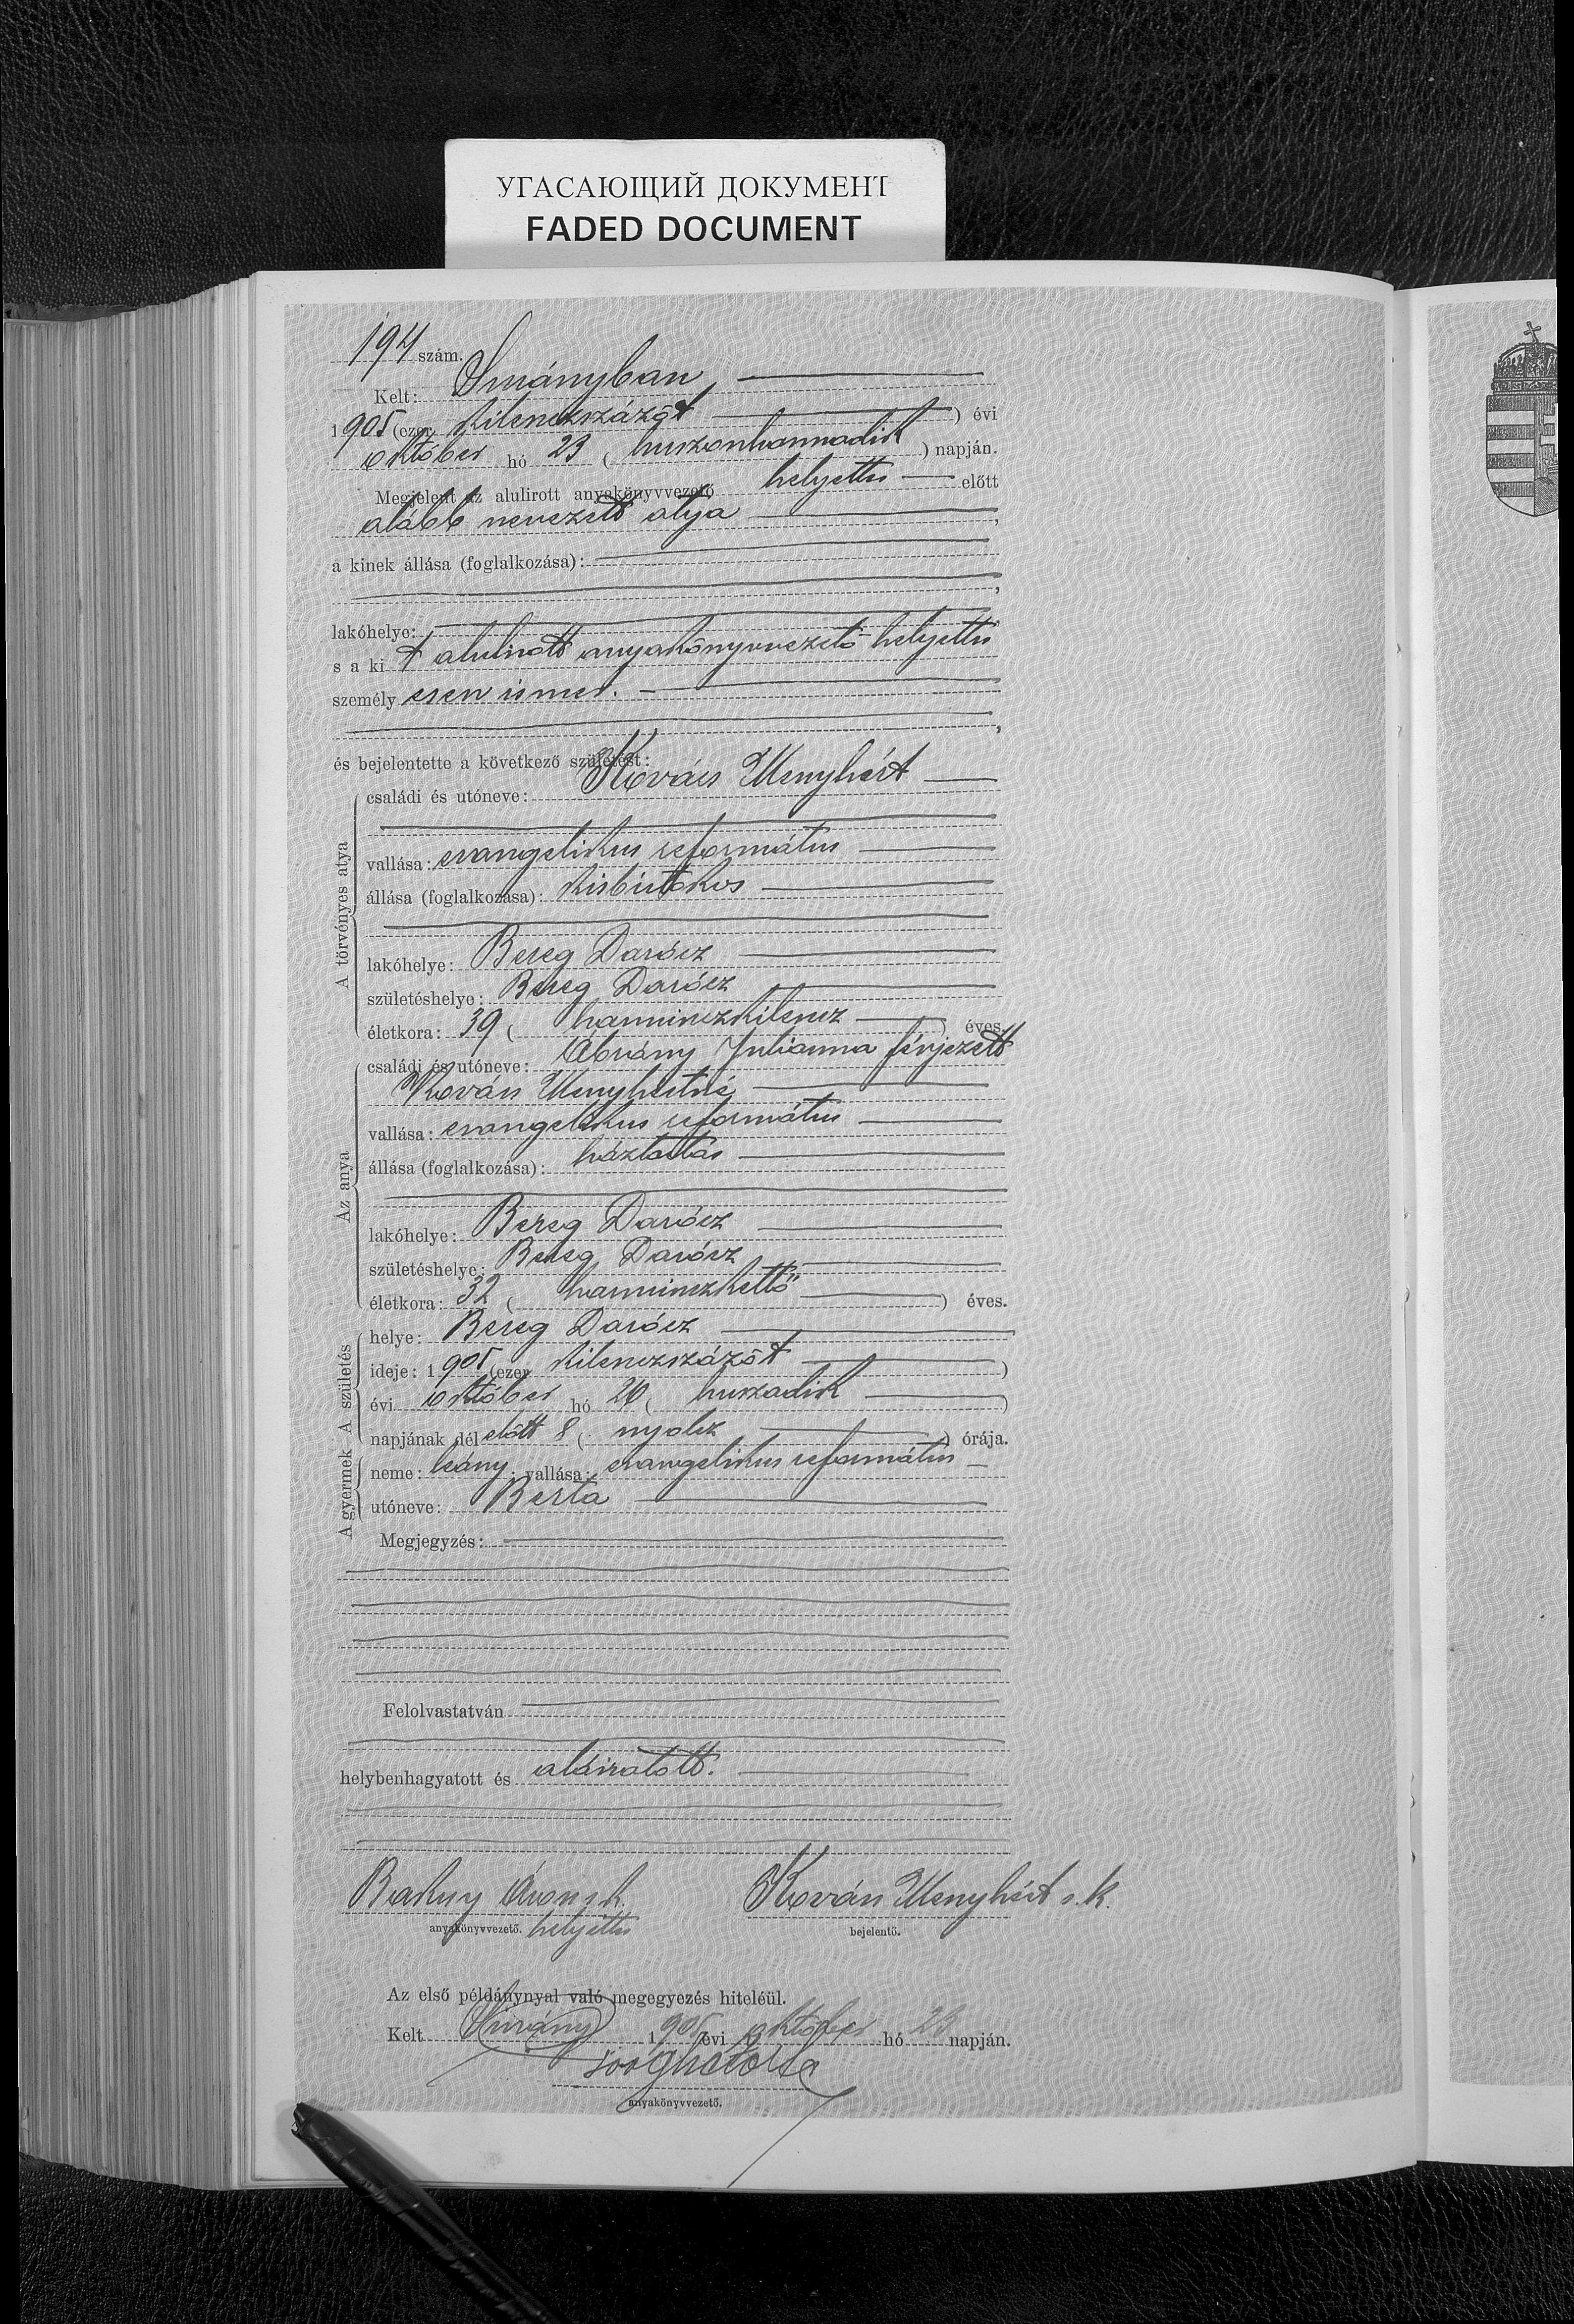 УГАСАЮЩИЙ ДОКУМЕНТ
FADED DOCUMENT
194 szám.
Kelt: Surányban
1905 (ezer kilenczszázöt ) évi
október hó 23 ( huszonharmadik ) napján.
Megjelent az alulirott anyakönyvvezető helyettes előtt
alább nevezett atya ,
a kinek állása (foglalkozása):
,
lakóhelye:
s a ki t alulirott anyakönyvvezető helyettes
személy esen ismer.
,
és bejelentette a következő születést:
A törvényes atya
családi és utóneve: Kovács Menyhért
vallása: evangelikus református
állása (foglalkozása): kisbirtokos
lakóhelye: Bereg Darócz
születéshelye: Bereg Darócz
életkora: 39 ( harminczkilencz ) éves.
Az anya
családi és utóneve: Ábrány Julianna férjezett
Kovács Menyhértné
vallása: evangelikus református
állása (foglalkozása): háztartás
lakóhelye: Bereg Darócz
születéshelye: Bereg Darócz
életkora: 32 ( harminczkettő ) éves.
A születés
helye: Bereg Darócz
ideje: 1905 (ezer kilenczszázöt )
évi október hó 20 ( huszadik )
napjának dél előtt 8 ( nyolcz ) órája.
A gyermek
neme: leány; vallása: evangelikus református
utóneve: Berta
Megjegyzés:
Felolvastatván
helybenhagyatott és aláiratott.
Bakny Áron s. k. Kovács Menyhért s. k.
anyakönyvvezető. helyettes bejelentő.
Az első példánynyal való megegyezés hiteléül.
Kelt Surány 1905 évi október hó 23 napján.
anyakönyvvezető.